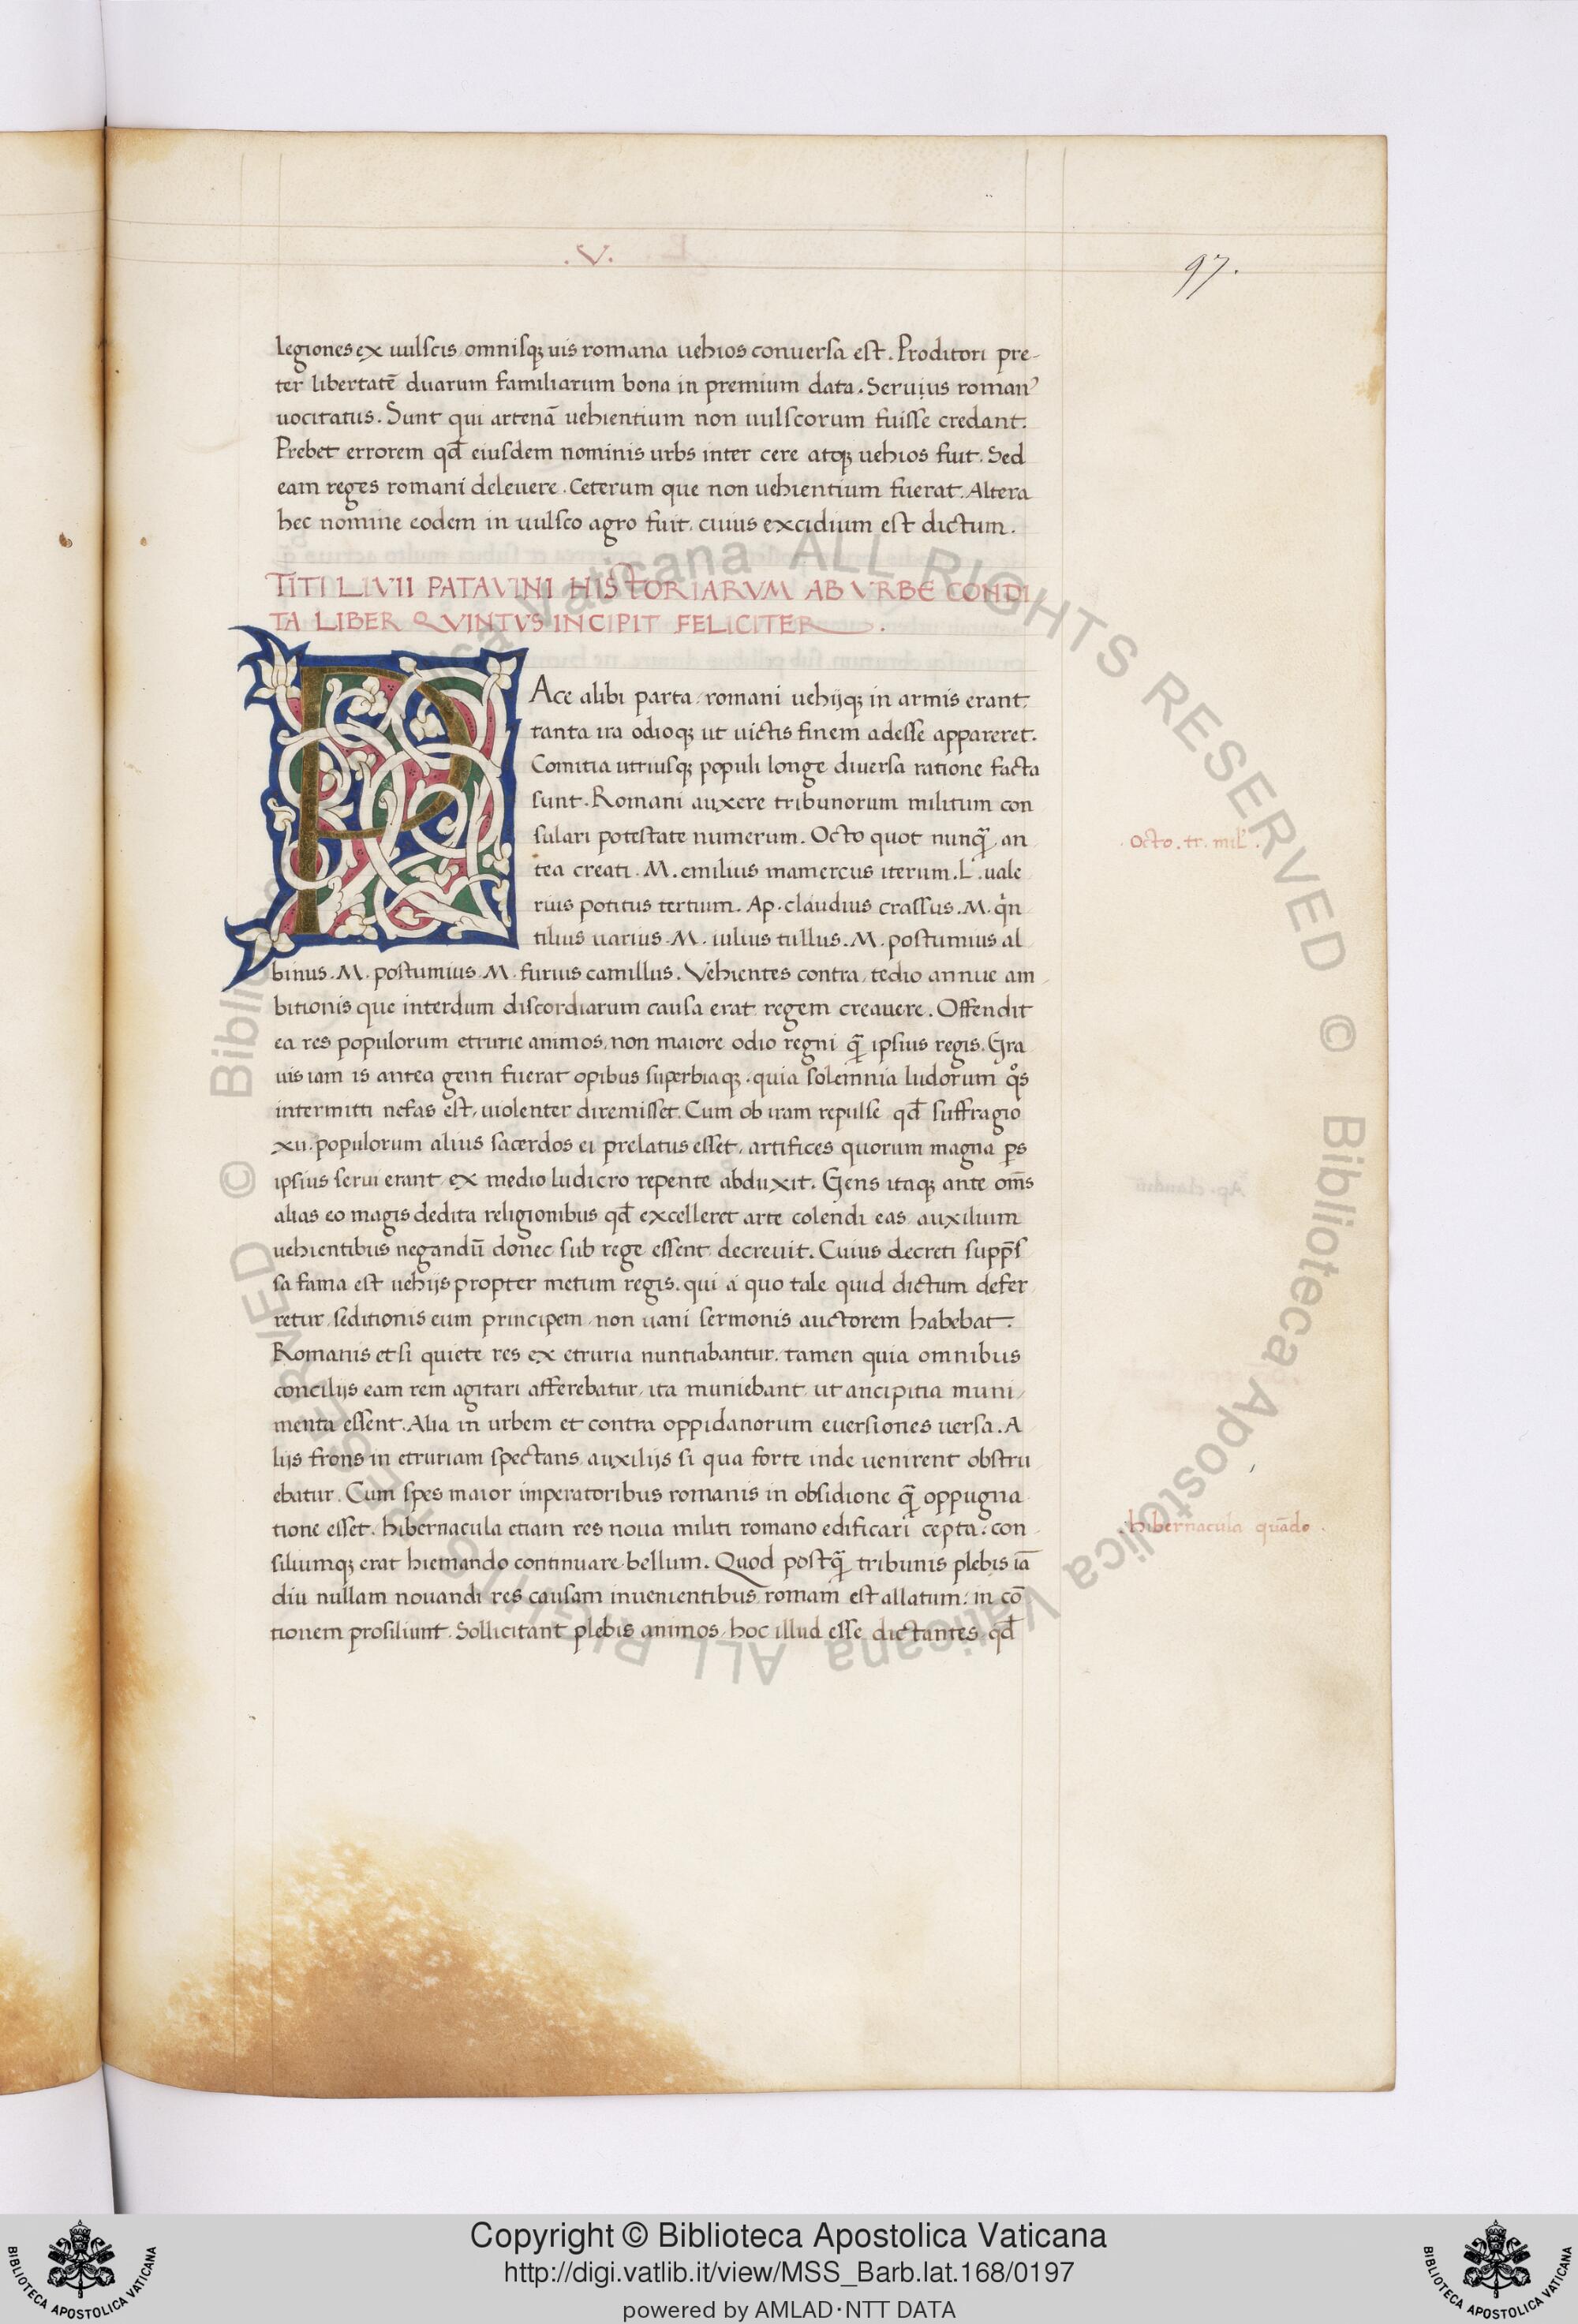 .V.
97.
legiones ex uulscis omnisq; uis romana uehios conuersa est. Proditori pre-
ter libertatē duarum familiarum bona in premium data. Seruius roman⁹
uocitatus. Sunt qui artenā uehientium non uulscorum fuisse credant.
Prebet errorem qđ eiusdem nominis urbs inter cere atq; uehios fuit. Sed
eam reges romani deleuere. Ceterum que non uehientium fuerat. Altera
hec nomine eodem in uulsco agro fuit. cuius excidium est dictum.
TITI LIVII PATAVINI HISTORIARVM AB VRBE CONDI
TA LIBER QVINTVS INCIPIT FELICITER.
PAce alibi parta, romani uehijq; in armis erant.
tanta ira odioq; ut uictis finem adesse appareret.
Comitia utriusq; populi longe diuersa ratione facta
sunt. Romani auxere tribunorum militum con
sulari potestate numerum. Octo quot nunq̄ an
tea creati. M. emilius mamercus iterum. L. uale
rius potitus tertium. Ap. claudius crassus. M. qͥn
tilius uarius. M. iulius tullus. M. postumius al
binus. M. postumius. M. furius camillus. Vehientes contra, tedio annue am
bitionis que interdum discordiarum causa erat regem creauere. Offendit
ea res populorum etrurie animos, non maiore odio regni q̄ ipsius regis. Gra
uis iam is antea genti fuerat opibus superbiaq;. quia solemnia ludorum qͦs
intermitti nefas est, uiolenter diremisset. Cum ob iram repulse qđ suffragio
xii. populorum alius sacerdos ei prelatus esset, artifices quorum magna ꝑs
ipsius serui erant ex medio ludicro repente abduxit. Gens itaq; ante om̄s
alias eo magis dedita religionibus qđ excelleret arte colendi eas. auxilium
uehientibus negandū donec sub rege essent decreuit. Cuius decreti supp̄s
sa fama est uehijs propter metum regis. qui a quo tale quid dictum defer
retur, seditionis eum principem, non uani sermonis auctorem habebat.
Romanis etsi quiete res ex etruria nuntiabantur. tamen quia omnibus
concilijs eam rem agitari afferebatur, ita muniebant ut ancipitia muni
menta essent. Alia in urbem et contra oppidanorum euersiones uersa. A
lijs frons in etruriam spectans auxilijs si qua forte inde uenirent obstru
ebatur. Cum spes maior imperatoribus romanis in obsidione q̄ oppugna
tione esset. hibernacula etiam res noua militi romano edificari cepta. con
siliumq; erat hiemando continuare bellum. Quod postq̄ tribunis plebis iā
diu nullam nouandi res causam inuenientibus romam est allatum. in cō
tionem prosiliunt. Sollicitant plebis animos, hoc illud esse dictantes qđ
. octo. tr. mil'.
. hibernacula quādo .
© Biblioteca Apostolica Vaticana ALL RIGHTS RESERVED © Biblioteca Apostolica Vaticana ALL RIGHTS RESERVED
Copyright © Biblioteca Apostolica Vaticana
http://digi.vatlib.it/view/MSS_Barb.lat.168/0197
powered by AMLAD·NTT DATA
BIBLIOTECA APOSTOLICA VATICANA
BIBLIOTECA APOSTOLICA VATICANA